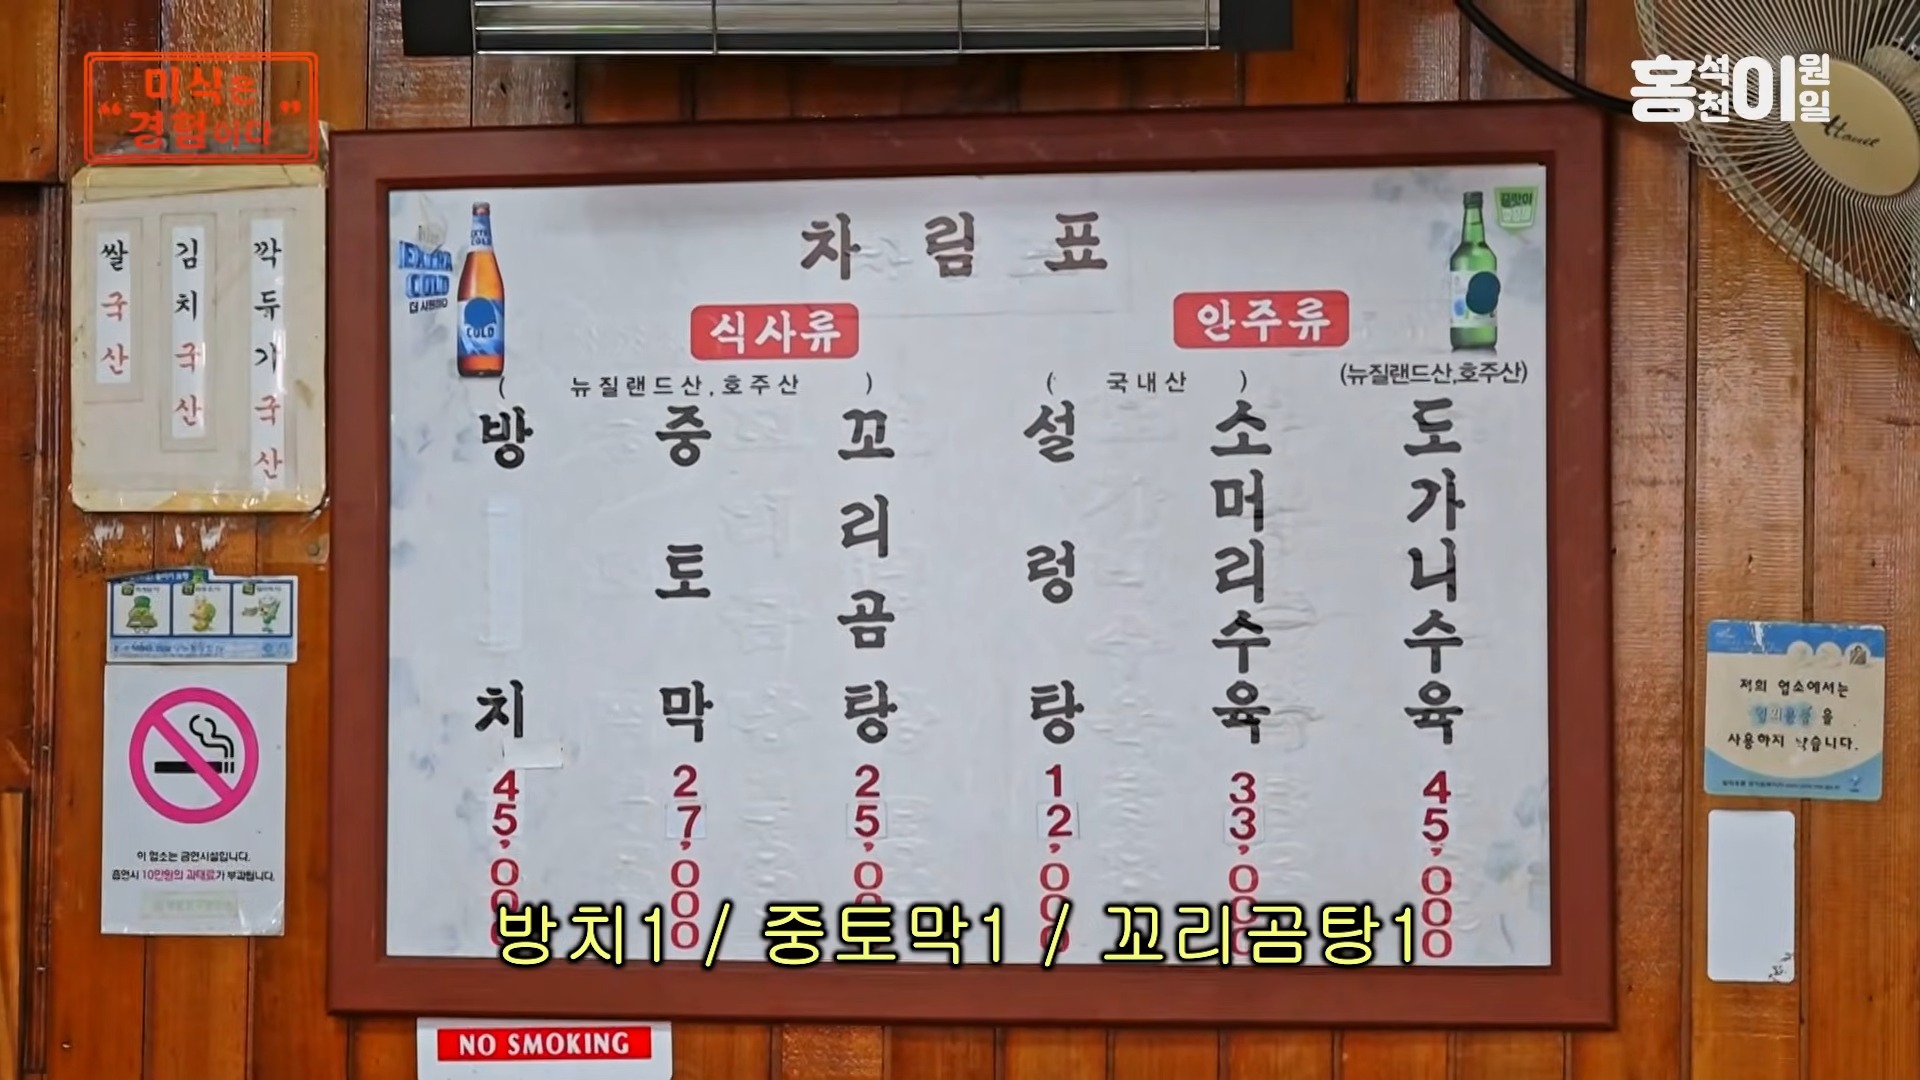 미식은
"경험이다"
홍석천이원일
쌀 국산
김치 국산
깍두기 국산
차림표
EXTRA
COLD
식사류
안주류
(뉴질랜드산,호주산)
(국내산)
(뉴질랜드산,호주산)
방치 45,000
중토막 27,000
꼬리곰탕 25,000
설렁탕 12,000
소머리수육 33,000
도가니수육 45,000
이 업소는 금연시설입니다.
흡연시 10만원의 과태료가 부과됩니다.
NO SMOKING
저희 업소에서는
을
사용하지 않습니다.
방치1 / 중토막1 / 꼬리곰탕1